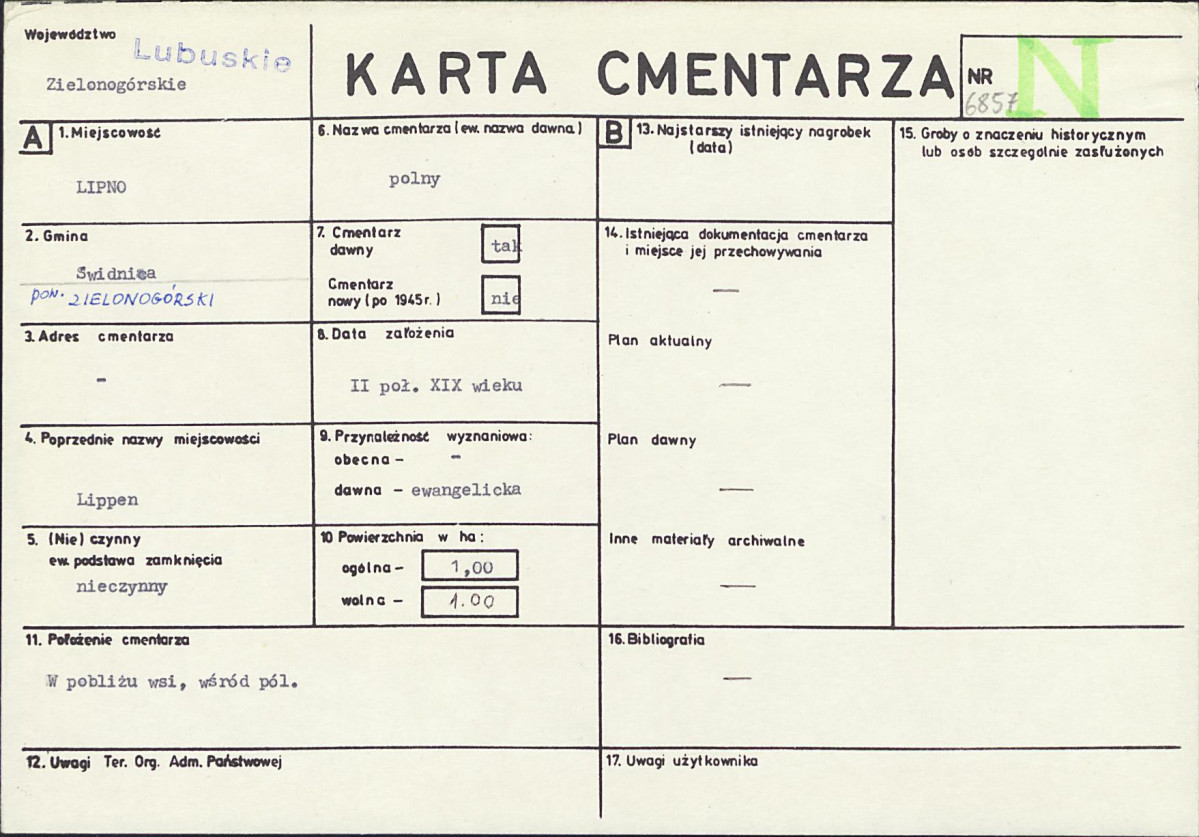 Województwo
Lubuskie
Zielonogórskie
KARTA CMENTARZA
NR
6857
N
A
1. Miejscowość
LIPNO
2. Gmina
Świdnica
POW. ZIELONOGÓRSKI
3. Adres cmentarza
-
4. Poprzednie nazwy miejscowości
Lippen
5. (Nie) czynny
ew. podstawa zamknięcia
nieczynny
6. Nazwa cmentarza (ew. nazwa dawna)
polny
7. Cmentarz
dawny
tak
Cmentarz
nowy (po 1945 r.)
nie
8. Data założenia
II poł. XIX wieku
9. Przynależność wyznaniowa:
obecna - -
dawna - ewangelicka
10 Powierzchnia w ha:
ogólna - 1,00
wolna - 1.00
11. Położenie cmentarza
W pobliżu wsi, wśród pól.
12. Uwagi Ter. Org. Adm. Państwowej
B
13. Najstarszy istniejący nagrobek
(data)
14. Istniejąca dokumentacja cmentarza
i miejsce jej przechowywania
—
Plan aktualny
—
Plan dawny
—
Inne materiały archiwalne
—
15. Groby o znaczeniu historycznym
lub osób szczególnie zasłużonych
16. Bibliografia
—
17. Uwagi użytkownika